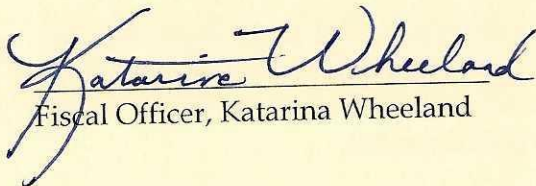 Katarina Wheeland
Fiscal Officer, Katarina Wheeland